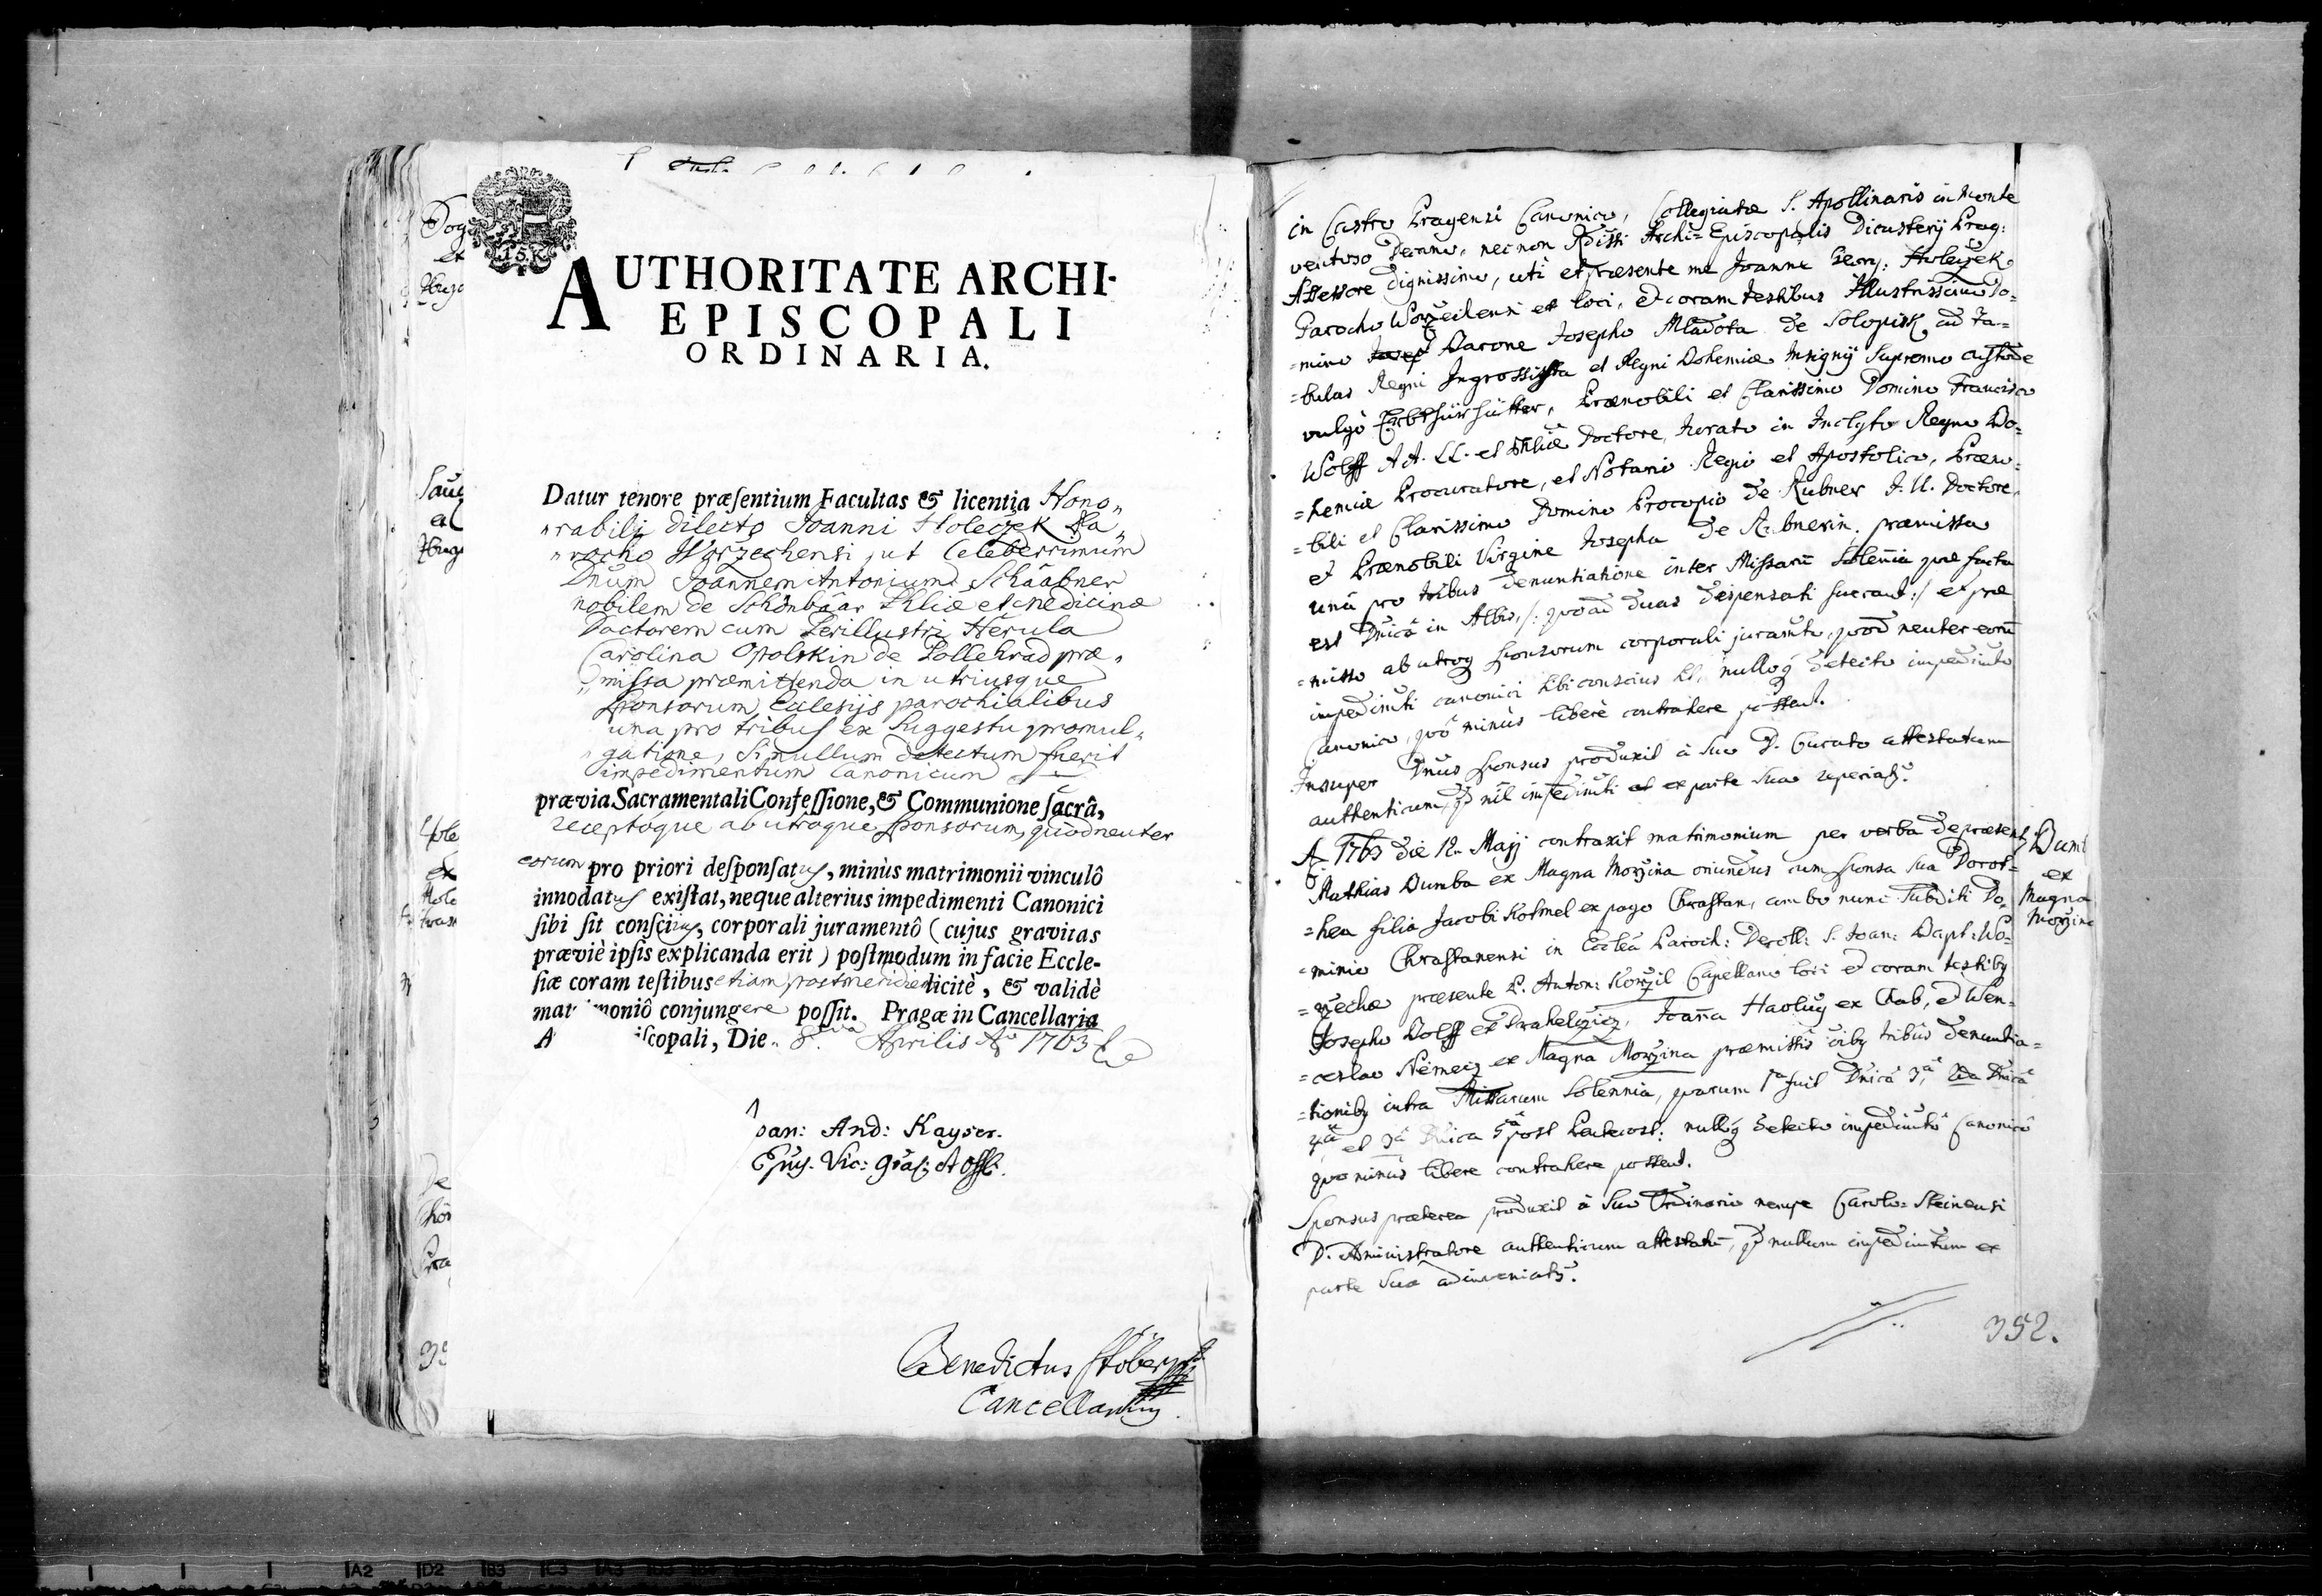 15. K
AUTHORITATE ARCHI-
EPISCOPALI
ORDINARIA.
Datur tenore præſentium Facultas & licentia Hono„
„rabili dilecto Joanni Holeczek Pa„
„rocho Worzechensi, ut Celeberrimum
Dnum Joannem Antonium Schäabner
nobilem de Schönbäar Phliæ et medicinæ
Doctorem cum Perillustri Herula
Carolina Opolskin de Pollehrad præ„
„missa præmittenda in utriusque
Sponsorum Ecclesijs parochialibus
una pro tribus ex Suggestu promul„
gatione, Si nullum detectum fuerit
impedimentum Canonicum
prævia Sacramentali Confeſſione, & Communione ſacrâ,
receptoque ab utroque Sponsorum, quòd neuter
eorum pro priori deſponſatus, minùs matrimonii vinculô
innodatus exiſtat, neque alterius impedimenti Canonici
ſibi ſit conſcius, corporali juramentô (cujus gravitas
præviè ipſis explicanda erit) poſtmodum in facie Eccle-
ſiæ coram teſtibus etiam postmeridie licitè, & validè
mat imoniô conjungere poſſit. Pragæ in Cancellaria
A iſcopali, Die 8.va Aprilis Ao 1763
Joan: And: Kayser.
Epus. Vic: gnâl: et Offl:
Benedictus Stöber
Cancellarius
in Castro Pragensi Canonico, Collegiatæ S. Apollinaris in Monte
ventoso Decano, nec non Rdissi Archi=Episcopalis Dicasterij Prag:
Assessore dignissimo, uti et præsente me Joanne Georg: Holeczek
Parocho Worzechensi et loci, et coram testibus Illustrissimo Do=
=mino Barone Josepho Mladota de Solopisk ad Ta=
=bulas Regni Ingrossista et Regni Bohemiæ Insignij Supremo custode
vulgò Erbthürhütter, Prænobili et Clarissimo Domino Francisco
Wolff AA. LL. et Phliæ Doctore, Jurato in Inclyto Regno Bo=
=hemiæ Procuratore, et Notario Regio et Apostolico, Præno=
=bili et Clarissimo Domino Procopio de Rubner J. U. Doctore,
et Prænobili Virgine Josepha de Rubnerin, præmissa
unâ pro tribus denuntiatione inter Missarũ Solemnia quæ facta
est Dnicâ in Albis, /: quoad duas dispensati fuerant :/ et præ
=misso ab utroq sponsorum corporali juramto, quod neuter eorũ
impedimti canonici sibi conscius sit, nulloq detecto impedimto
Canonico, quò minùs liberè contrahere possent.
Insuper Dnus sponsus produxit à Suo D. Curato attestatum
authenticum, qd nil impedimti ex parte Sua reperiatr.
Ao 1763 die 12. Maji contraxit matrimonium per verba de præsenti
Mathias Dumba ex Magna Morzina oriundus cum sponsa sua Doroth=
=hea filia Jacobi Kohmel ex pago Chrastan, ambo nunc subditi Do=
=minio Chrastanensi in Ecclâ Paroch: Decoll: S. Joan: Bapt: Wo=
=rzechæ præsente P. Anton: Korzil Capellano loci et coram testibq
Josepho Dolff ex Drahelczicz, Joana Hawlug ex Chab, et Wen=
=ceslao Nemecz ex Magna Morzina præmissis tribus denuntia=
=tionibq intra Missarum Solemnia, quarum 1a fuit Dnicâ 3â, 2da Dnicâ
4â et 3â Dnica 5â post Pentecost: nulloq detecto impedimto Canonico
quo minus libere contrahere possent.
Sponsus præterea produxit à Suo Ordinario nempe Carolo=Steinensi
D. Administratore authenticum attestatũ, qd nullum impedimtum ex
parte Sua adinveniatr.
Dumb
ex
Magna
Morzina
352.